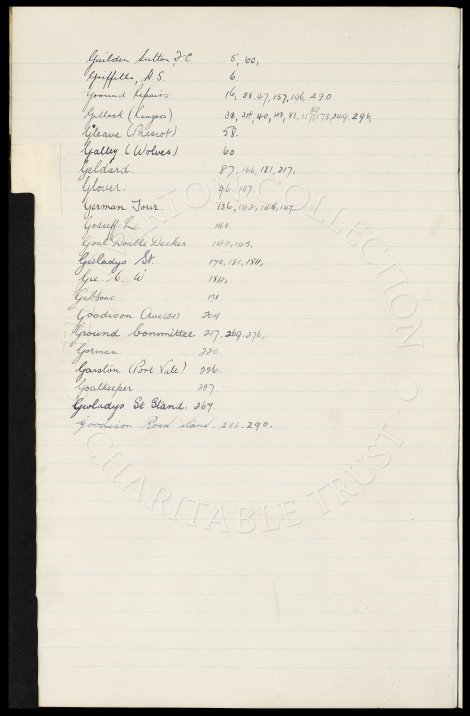 Guilden Sutton F.C. 5, 60,
Griffiths, A S. 6
Ground Repairs 16, 28, 47, 157, 196, 290
Gillick (Rangers) 40, 249, 296,
Gleave (Prescot) 58.
Galley (Wolves) 60
Geldard. 87, 166, 181, 217,
Glover. 96, 107
German Tour. 136, 142, 145, 147,
140.
Goal Double Decker 142, 145,
Gwladys St. 170, 181, 184,
Gee. C. W 184,
Gibbons 191
Goodison Ave 204
Ground Committee 217, 269, 276,
Gorman 220
Garston (Port Vale) 226.
Goalkeeper 227.
Gwladys St Stand. 267
Goodison Road stand. 285, 290.
COLLECTION
CHARITABLE TRUST